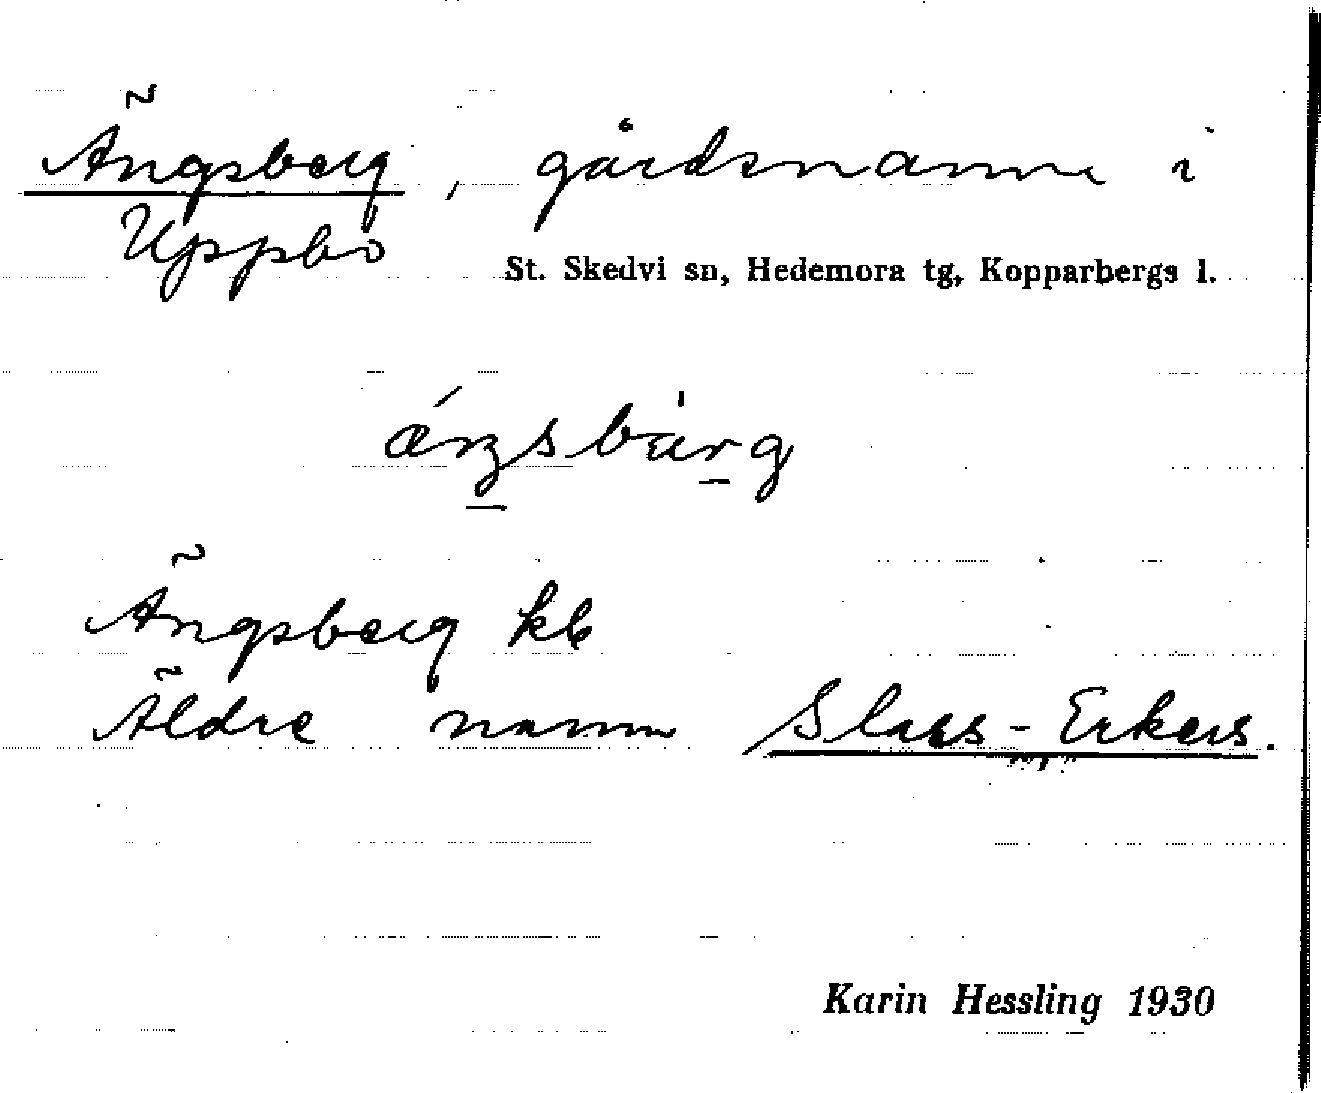 Ängsberg, gårdsnamn i
Uppbo
St. Skedvi sn, Hedemora tg, Kopparbergs l.
Ängsberg kb
Äldre namn Slars-Erkers.
Karin Hessling 1930